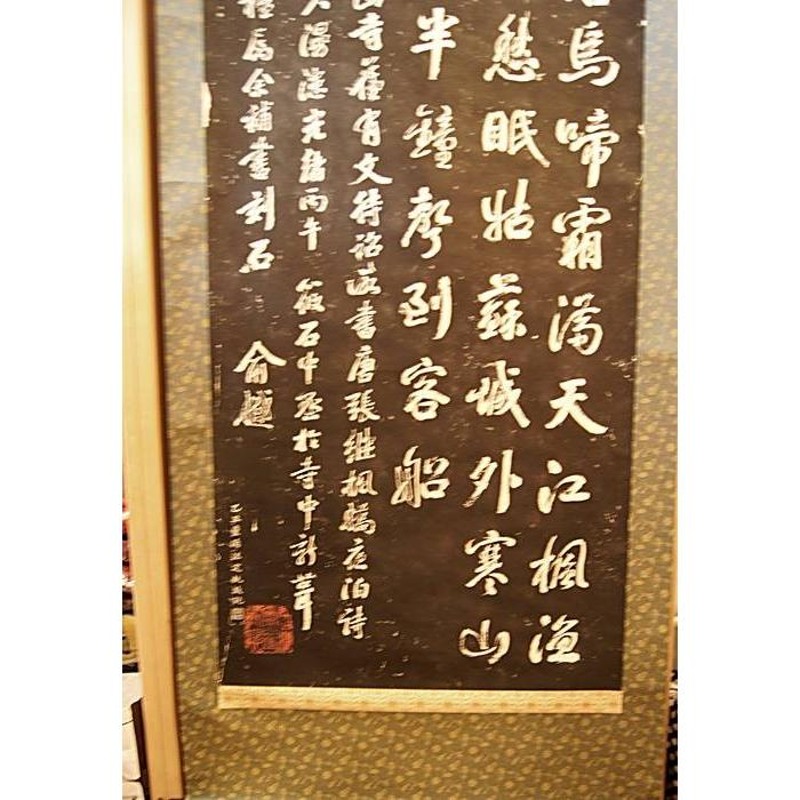 烏啼霜滿天江楓漁
愁眠姑蘇城外寒山
半鐘聲到客船
山寺舊有文待詔所書唐張繼楓橋夜泊詩
久漫漶光緒丙午筱石中丞於寺中新葺
楹屬余補書刻石 俞樾